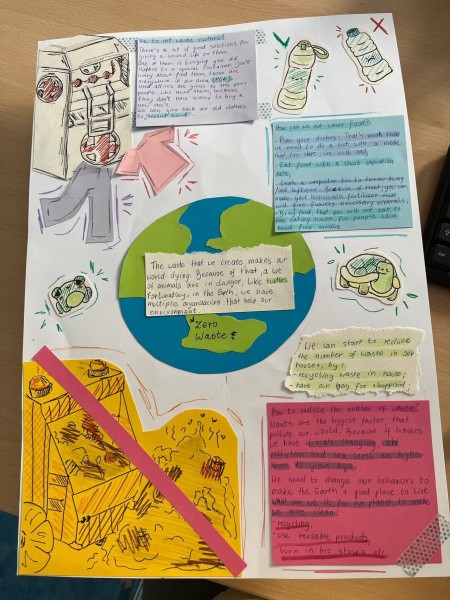 How to not waste clothes?
There's a lot of good solutions for
giving a second life for them.
One of them is bringing your old
clothes to a special container. You don't
worry about find them, there are
everywhere in our area (PCK)
Used clothes are given to the poor
people, who need them, because
they don't have money to buy a
new ones.
We can give back our old clothes
to "second hand".
How can we not waste food?
- Plan your dishes. That's mean that
we need to do a list with a meal
that for sure, we will eat,
- Eat food with a short expiration
date,
- Create a composter bin to further drying
food leftover. Because of that you can
make your homemade fertilizer that
will have necessary minerals,
- Buy food that you will eat
The waste that we create makes our
world dying. Because of that, a lot
of animals are in danger, like turtles
Fortunately, in the Earth, we have
multiple organizations that help our
environment.
Zero
Waste
We can start to reduce
the number of waste in our
houses, by:
- recycling waste in house,
- have own bag for shopping
How to reduce the number of waste?
Waste are the biggest factor, that
pollute our world. Because of wastes
we have climate changing, air
pollution and sea level are higher
than 10 years ago.
We need to change our behaviors to
make the Earth a good place to live.
What can we do for our planet to make
- recycling,
- use reusable products
- burn in bio stoves etc.